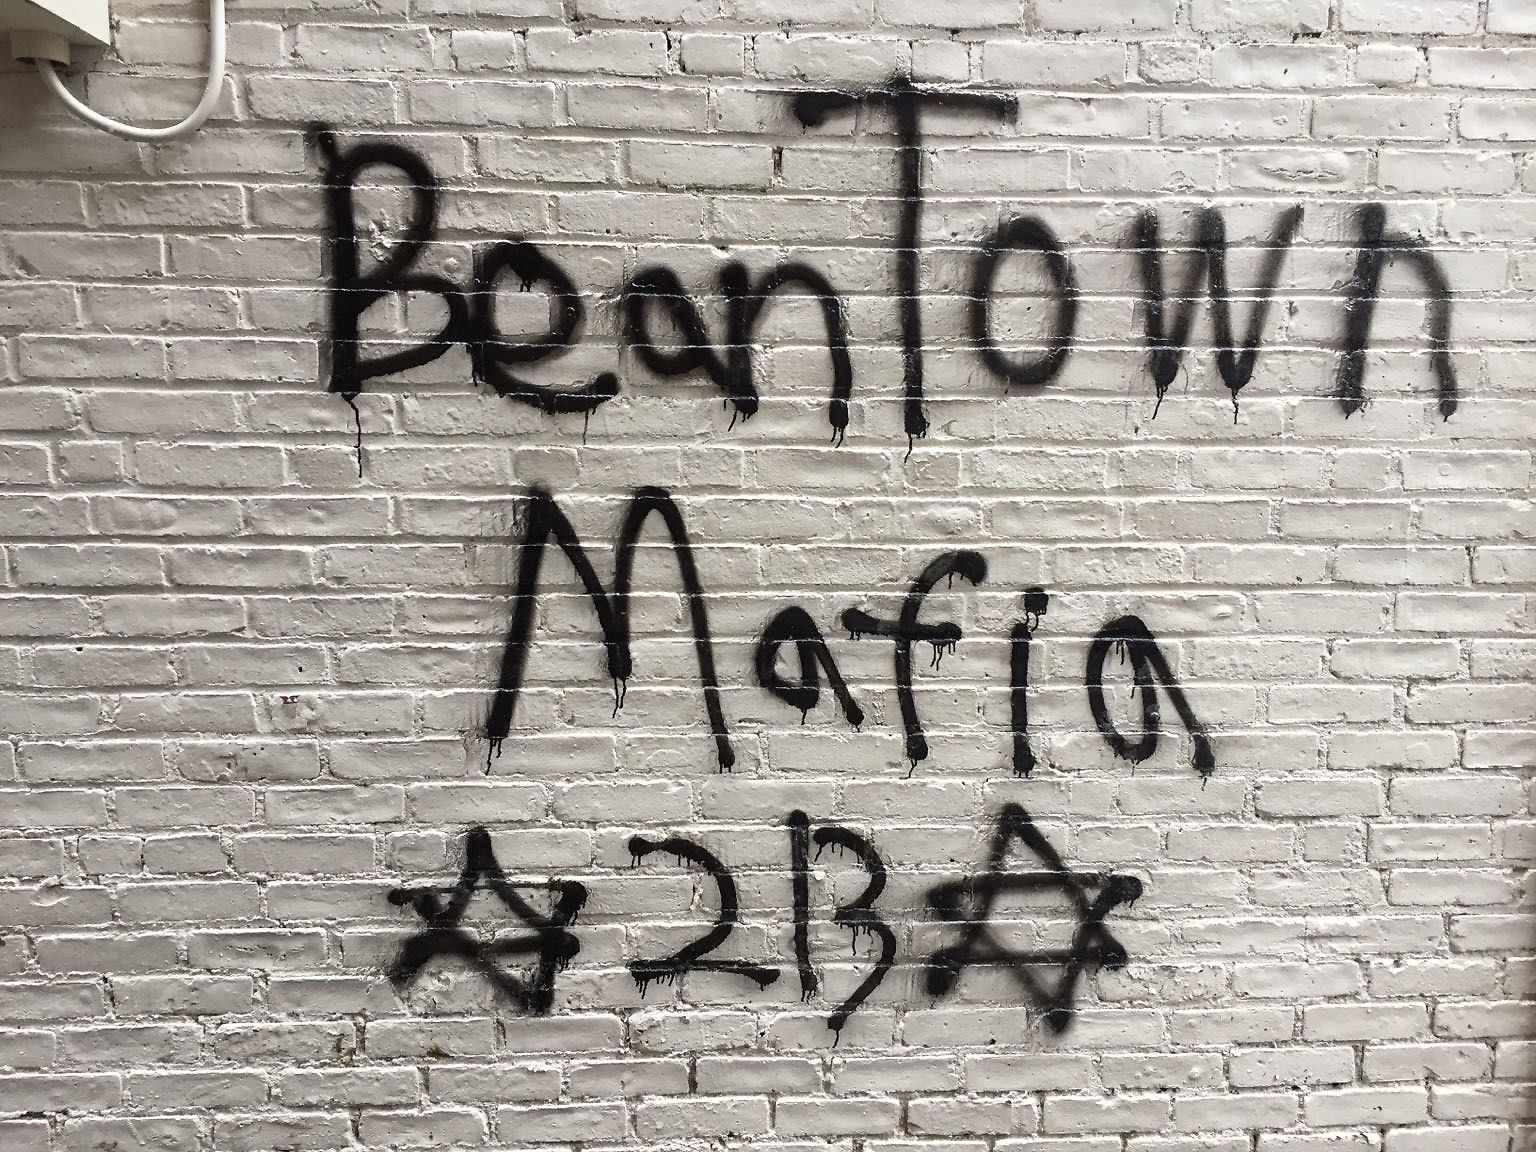 BeanTown
Mafia
☆ 2B ☆